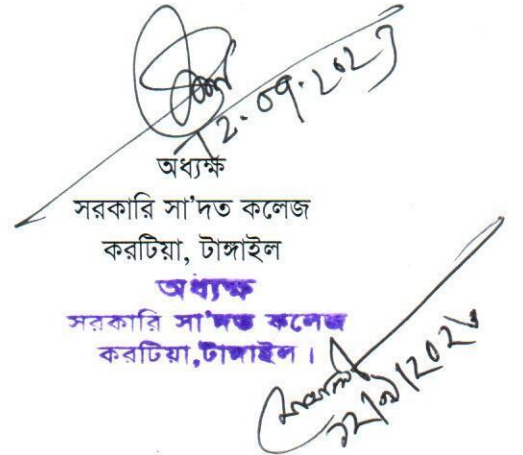 12.09.2023
অধ্যক্ষ
সরকারি সা'দত কলেজ
করটিয়া, টাঙ্গাইল
অধ্যক্ষ
সরকারি সা'দত কলেজ
করটিয়া,টাঙ্গাইল।